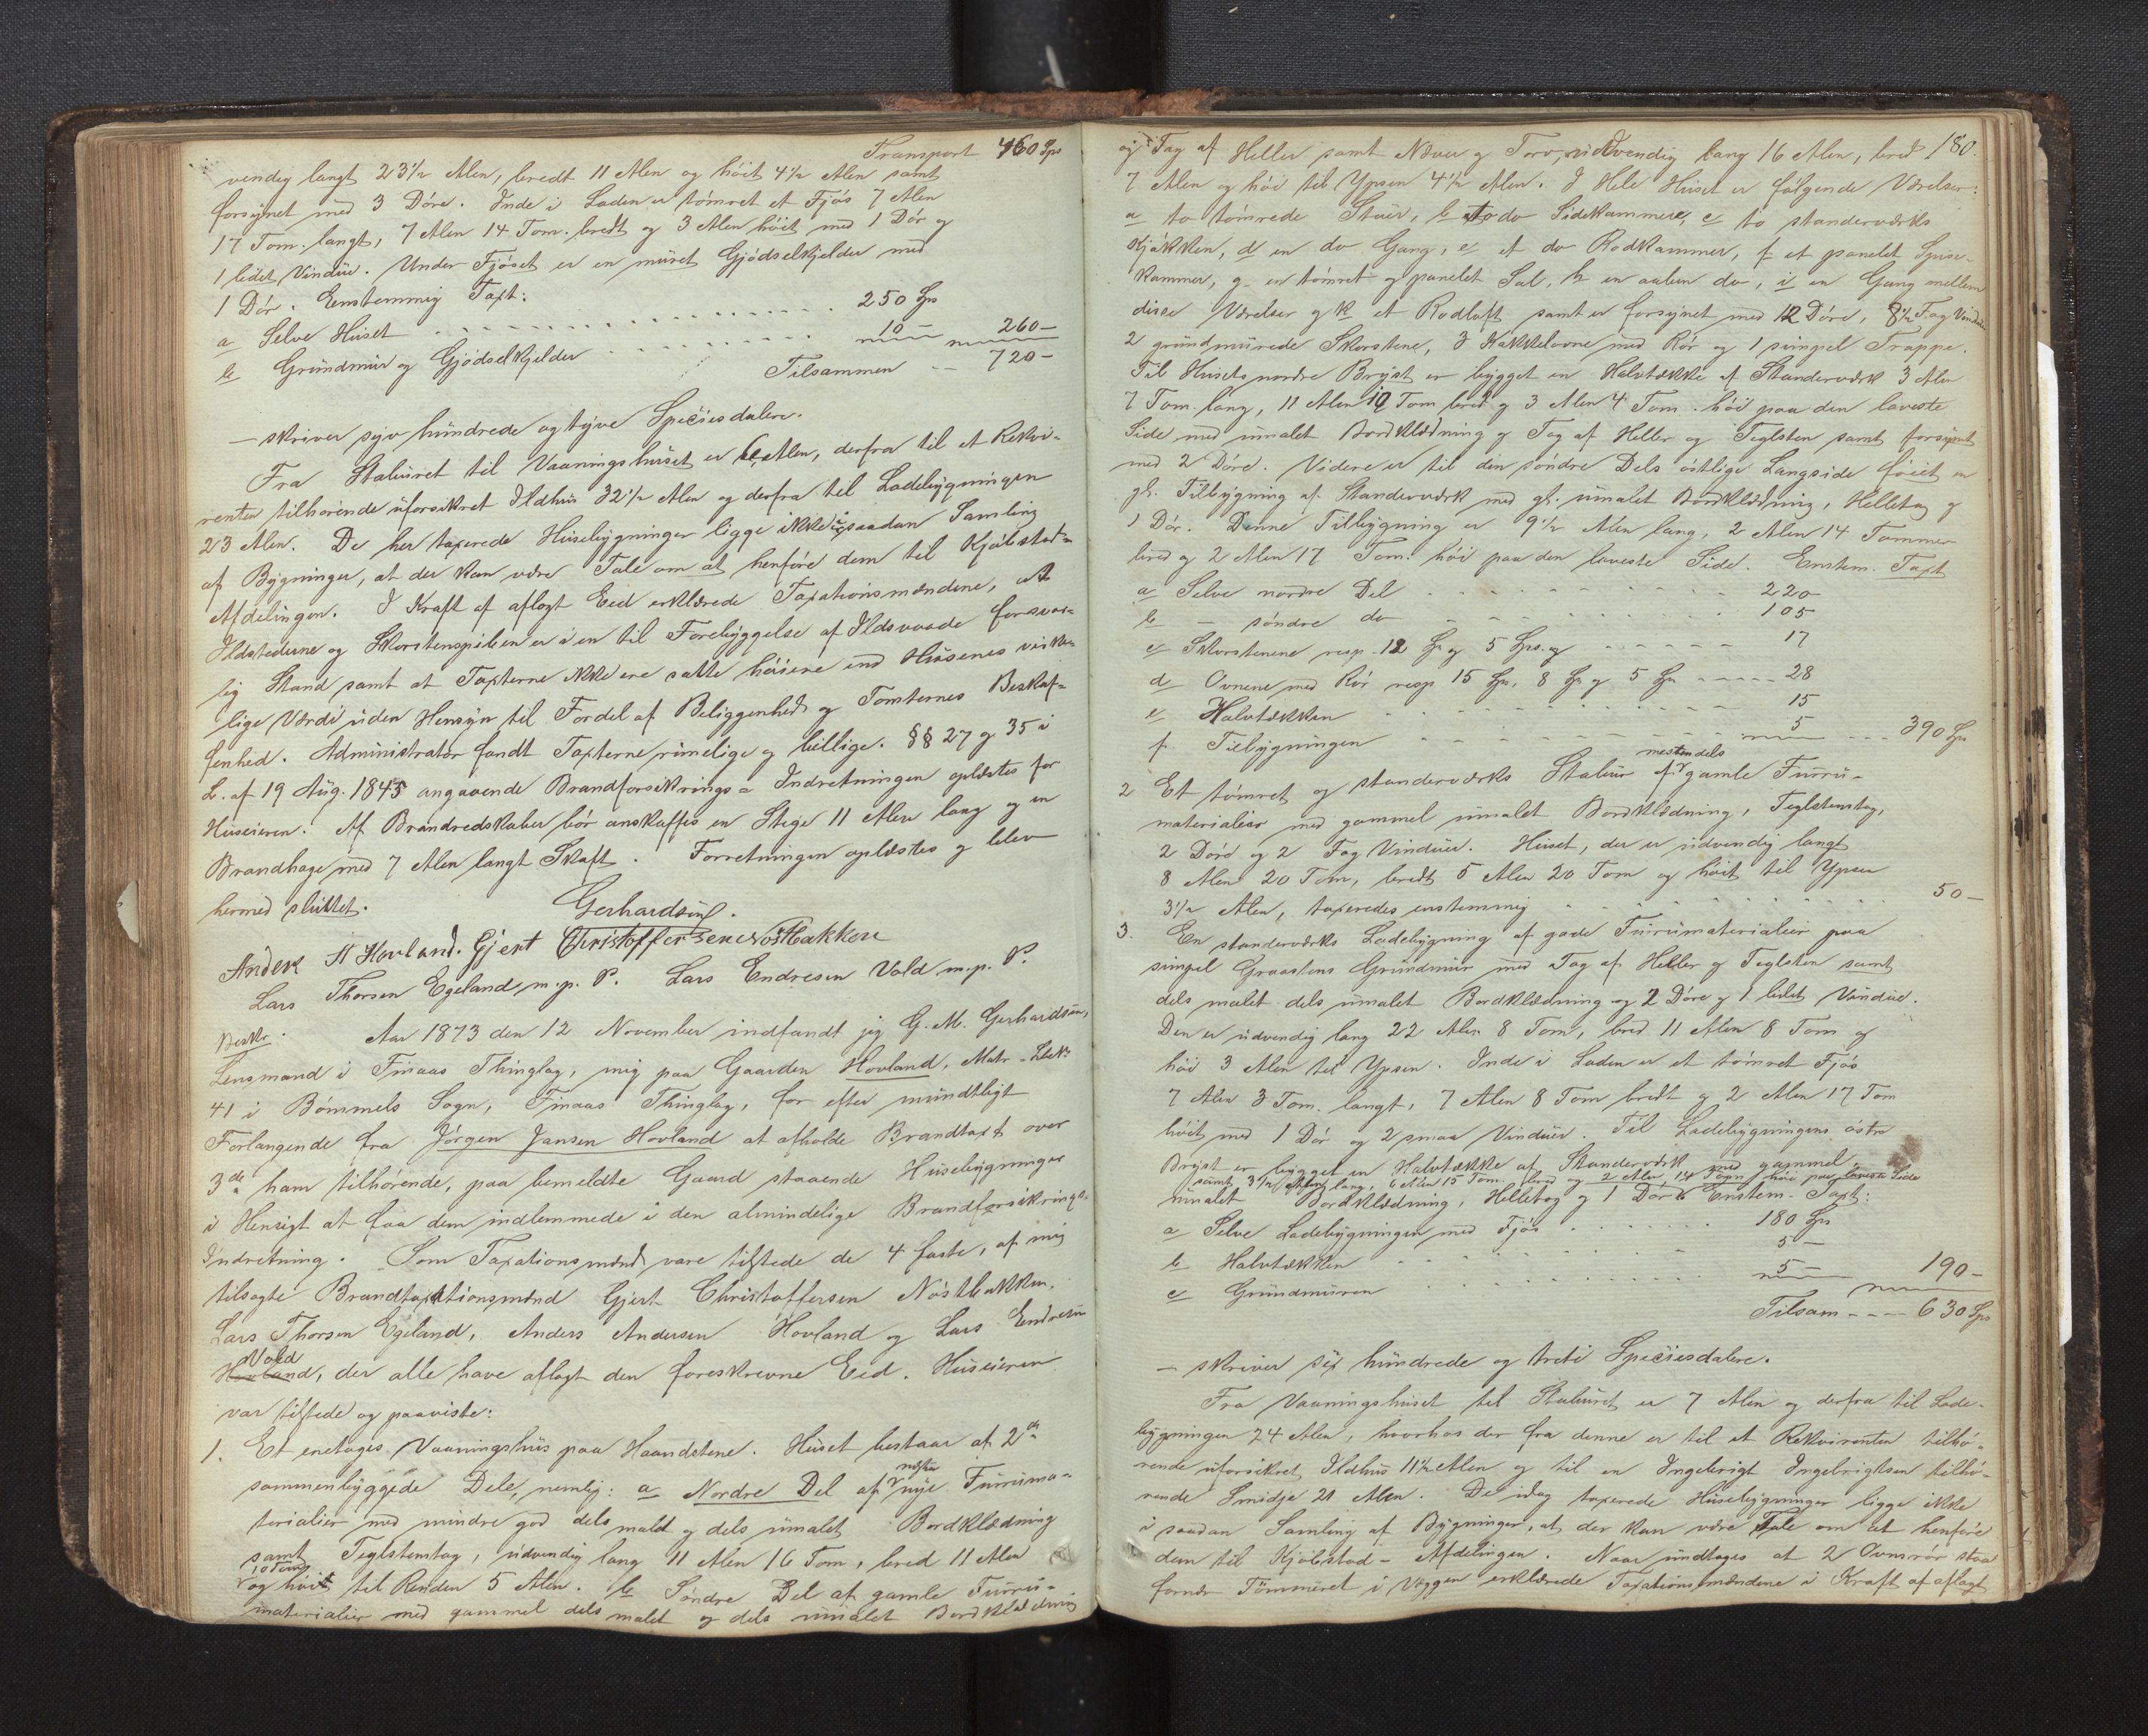 Transport 460 Spd
vendig langt 23 1/2 Alen, bredt 11 Alen og höit 4 1/2 Alen samt
forsynet med 3 Döre. Inde i Laden er tömret et Fjös 7 Alen
17 Tom. langt, 7 Alen 14 Tom. bredt og 3 Alen höit med 1 Dör og
1 lidet Vindue. Under Fjöset er en muret Gjödselkjelder med
1 Dör. Eenstemmig Taxt:
a Selve Huset 250 Spd
b Grundmur og Gjödselkjelder 10 – 260 –
Tilsammen 720 –
– skriver syv hundrede og tyve Speciesdalere.
Fra Stabüret til Vaaningshuset er 6 Alen, derfra til et Rekvi-
renten tilhörende uforsikret Ildhus 32 1/2 Alen og derfra til Ladebygningen
23 Alen. De her taxerede Husebygninger ligge ikke i saadan Samling
af Bygninger, at der kan være Tale om at henföre dem til Kjöbstad-
Afdelingen. I Kraft af aflagt Eed erklærede Taxationsmændene, at
Ildstederne og Skorstenspiben er i en til Forebyggelse af Ildsvaade forsvar-
lig Stand samt at Taxterne ikke ere satte höiere end Husenes virke-
lige Værdi uden Hensyn til Fordel af Beliggenhed og Tomternes Beskaf-
fenhed. Administrator fandt Taxterne rimelige og billige. §§ 27 og 35 i
L. af 19 Aug. 1845 angaaende Brandforsikrings-Indretningen oplæstes for
Huseieren. Af Brandredskaber bör anskaffes en Stige 11 Alen lang og en
Brandhage med 7 Alen langt Skaft. Forretningen oplæstes og blev
hermed sluttet.
Gerhardsen.
Anders A Hovland. Gjert Christoffersen Nöstbakken
Lars Thorsen Egeland, m. p. P. Lars Endresen Vold m. p. P.
Beskr. Aar 1873 den 12 November indfandt jeg G. M. Gerhardsen,
Lensmand i Finaas Thinglag, mig paa Gaarden Hovland, Matr-Lbn:
41 i Bömmels Sogn, Finaas Thinglag, for efter mündtligt
Forlangende fra Jörgen Jansen Hovland at afholde Brandtaxt over
3de ham tilhörende, paa bemeldte Gaard staaende Husebygninger
i Hensigt at faa dem indlemmede i den almindelige Brandforsikrings-
Indretning. Som Taxationsmænd vare tilstede de 4 faste, af mig
tilsagte Brandtaxationsmænd Gjert Christoffersen Nöstbakken,
Lars Thorsen Egeland, Anders Andersen Hovland og Lars Endresen
Vold
Hovland, der alle have aflagt den foreskrevne Eed. Huseieren
var tilstede og paaviste:
1. Et enetages Vaaningshus paa Haandstene. Huset bestaar af 2de
næsten
sammenbyggede Dele, nemlig: a Nordre Del af nye Furuma-
terialier med mindre god dels malet og dels umalet Bordklædning
samt Teglstenstag, udvendig lang 11 Alen 16 Tom, bred 11 Alen
10 Tom
og höit til Renden 5 Alen. b Söndre Del af gamle Furru-
materialier med gammel dels malet og dels umalet Bordklædning
180.
og Tag af Heller samt Næver og Torv, udvendig lang 16 Alen, bred
7 Alen og höi til Ypsen 4 1/2 Alen. I Hele Huset er fölgende Værelser:
a to tömrede Stuer, b to do Sidekammere, c to standerværks
Kjökken, d en do Gang, e et do Rodkammer, f et panelet Spise-
kammer, g en tömret og panelet Sal, h en aaben do, i en Gang mellem
disse Værelser og k et Rodloft samt er forsynet med 12 Döre, 8 1/2 Fag Vinduer
2 grundmurede Skorstene, 3 Kakkelovne med Rör og 1 simpel Trappe.
Til Husets nordre Bryst er bygget en Halvtække af Standerværk 3 Alen
7 Tom. lang, 11 Alen 10 Tom bred og 3 Alen 4 Tom. höi paa den laveste
Side med umalet Bordklædning og Tag af Heller og Teglsten samt forsynt
med 2 Döre. Videre er til den söndre Dels östlige Langside föiet en
gl. Tilbygning af Standerværk med gl. umalet Bordklædning, Helletag og
1 Dör. Denne Tilbygning er 9 1/2 Alen lang, 2 Alen 14 Tommer
bred og 2 Alen 17 Tom. höi paa den laveste Side. Enstem. Taxt
a Selve nordre Del 220
b – söndre do 105
c Skorstenene resp. 12 Spd og 5 Spd. og 17
d Ovnene med Rör resp 15 Spd, 8 Spd og 5 Spd 28
e Halvtækken 15
f. Tilbygningen 5 390 Spd
mestendels
2 Et tömret og standerværks Stabur af gamle Furru-
materialier med gammel umalet Bordklædning, Teglstenstag,
2 Döre og 2 Fag Vinduer. Huset, der er udvendig langt
8 Alen 20 Tom, bredt 5 Alen 20 Tom og höit til Ypsen
3 1/2 Alen, taxeredes enstemmig 50 –
3. En standerværks Ladebygning af gode Furumaterialier paa
simpel Graastens Grundmur med Tag af Heller og Teglsten samt
dels malet dels umalet Bordklædning og 2 Döre og 1 lidet Vindue.
Den er udvendig lang 22 Alen 8 Tom, bred 11 Alen 8 Tom og
höi 3 Alen til Ypsen. Inde i Laden er et tömret Fjös
7 Alen 3 Tom. langt, 7 Alen 8 Tom bredt og 2 Alen 17 Tom
höit med 1 Dör og 2 smaa Vinduer. Til Ladebygningens östre
Bryst er bygget en Halvtække af Standerværk med gammel
samt 3 1/2 Alen lang, 6 Alen 15 Tom. bred og 2 Alen 14 Tom höi paa laveste Side
umalet Bordklædning, Helletag og 1 Dör. Enstem. Taxt:
a Selve Ladebygningen med Fjös 180 Spd
b Halvtækken 5 –
c Grundmuren 5 – 190 –
Tilsam 630 Spd
– skriver sex hundrede og treti Speciesdalere.
Fra Vaaningshuset til Stabüret er 7 Alen og derfra til Lade-
bygningen 24 Alen, hvorhos der fra denne er til et Rekvirenten tilhö-
rende uforsikret Ildhus 11 1/2 Alen og til en Ingebrigt Ingebrigtsen tilhö-
rende Smidje 21 Alen. De idag taxerede Husebygninger ligge ikke
i saadan Samling af Bygninger, at der kan være Tale om at henföre
dem til Kjöbstad-Afdelingen. Naar undtages at 2 Ovnsrör staa
fornær Tömmeret i Væggen erklærede Taxationsmændene i Kraft af aflagt